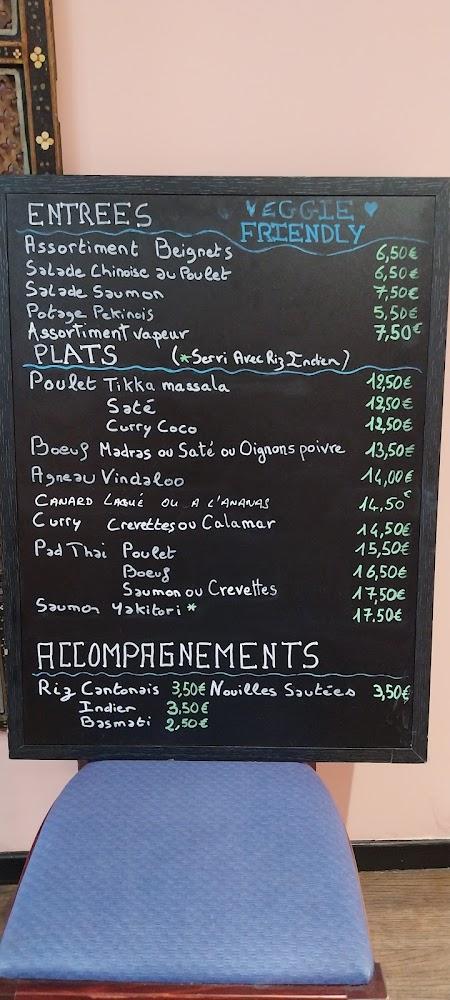 ENTREES VEGGIE ♥
FRIENDLY
Assortiment Beignets 6,50€
Salade Chinoise au Poulet 6,50€
Salade Saumon 7,50€
Potage Pekinois 5,50€
Assortiment vapeur 7,50€
PLATS (*Servi Avec Riz Indien)
Poulet Tikka massala 12,50€
Saté 12,50€
Curry Coco 12,50€
Boeuf Madras ou Saté ou Oignons poivre 13,50€
Agneau Vindaloo 14,00€
CANARD LAQUÉ OU A L'ANANAS 14,50€
Curry Crevettes ou Calamar 14,50€
Pad Thai Poulet 15,50€
Boeuf 16,50€
Saumon ou Crevettes 17,50€
Saumon Yakitori * 17.50€
ACCOMPAGNEMENTS
Riz Cantonais 3,50€ Nouilles Sautées 3,50€
Indien 3,50€
Basmati 2,50€